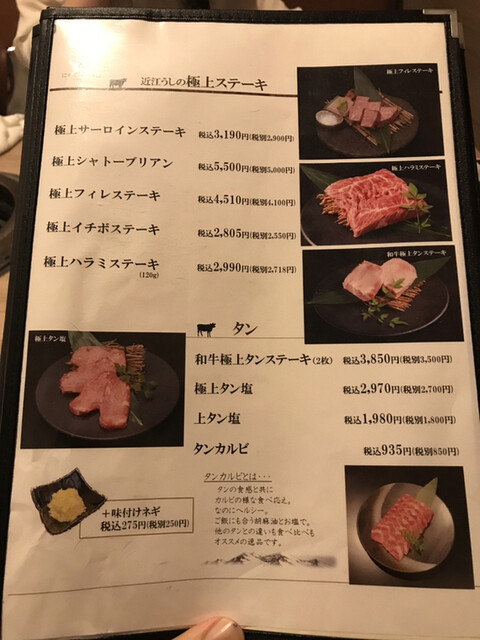 近江うしの極上ステーキ
極上フィレステーキ
極上サーロインステーキ 税込3,190円(税別2,900円)
極上シャトーブリアン 税込5,500円(税別5,000円)
極上ハラミステーキ
極上フィレステーキ 税込4,510円(税別4,100円)
極上イチボステーキ 税込2,805円(税別2,550円)
和牛極上タンステーキ
極上ハラミステーキ 税込2,990円(税別2,718円)
(120g)
タン
極上タン塩
和牛極上タンステーキ(2枚) 税込3,850円(税別3,500円)
極上タン塩 税込2,970円(税別2,700円)
上タン塩 税込1,980円(税別1,800円)
タンカルビ 税込935円(税別850円)
+味付けネギ
税込275円(税別250円)
タンカルビとは・・・
タンの食感と共に
カルビの様な食べ応え。
なのにヘルシー。
ご飯にも合う胡麻油とお塩で。
他のタンとの違いも食べ比べも
オススメの逸品です。